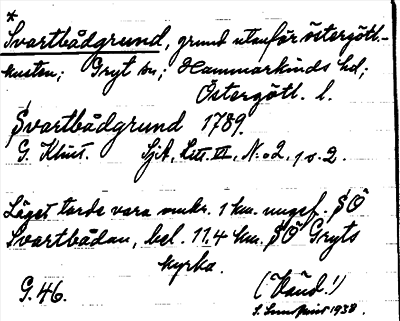 *
Svartbådgrund, grund utanför östergötl.-
kusten; Gryt sn; Hammarkinds hd;
Östergötl. l.
Svartbådgrund 1789.
G. Klint. SjA, Litt. VI, N:o 2, 1 o. 2.
Läget torde vara omkr. 1 km. ungef. SÖ
Svartbådan, bel. 11.4 km. SÖ Gryts
kyrka.
G. 46. (Vänd!)
S. Lundqvist 1938.